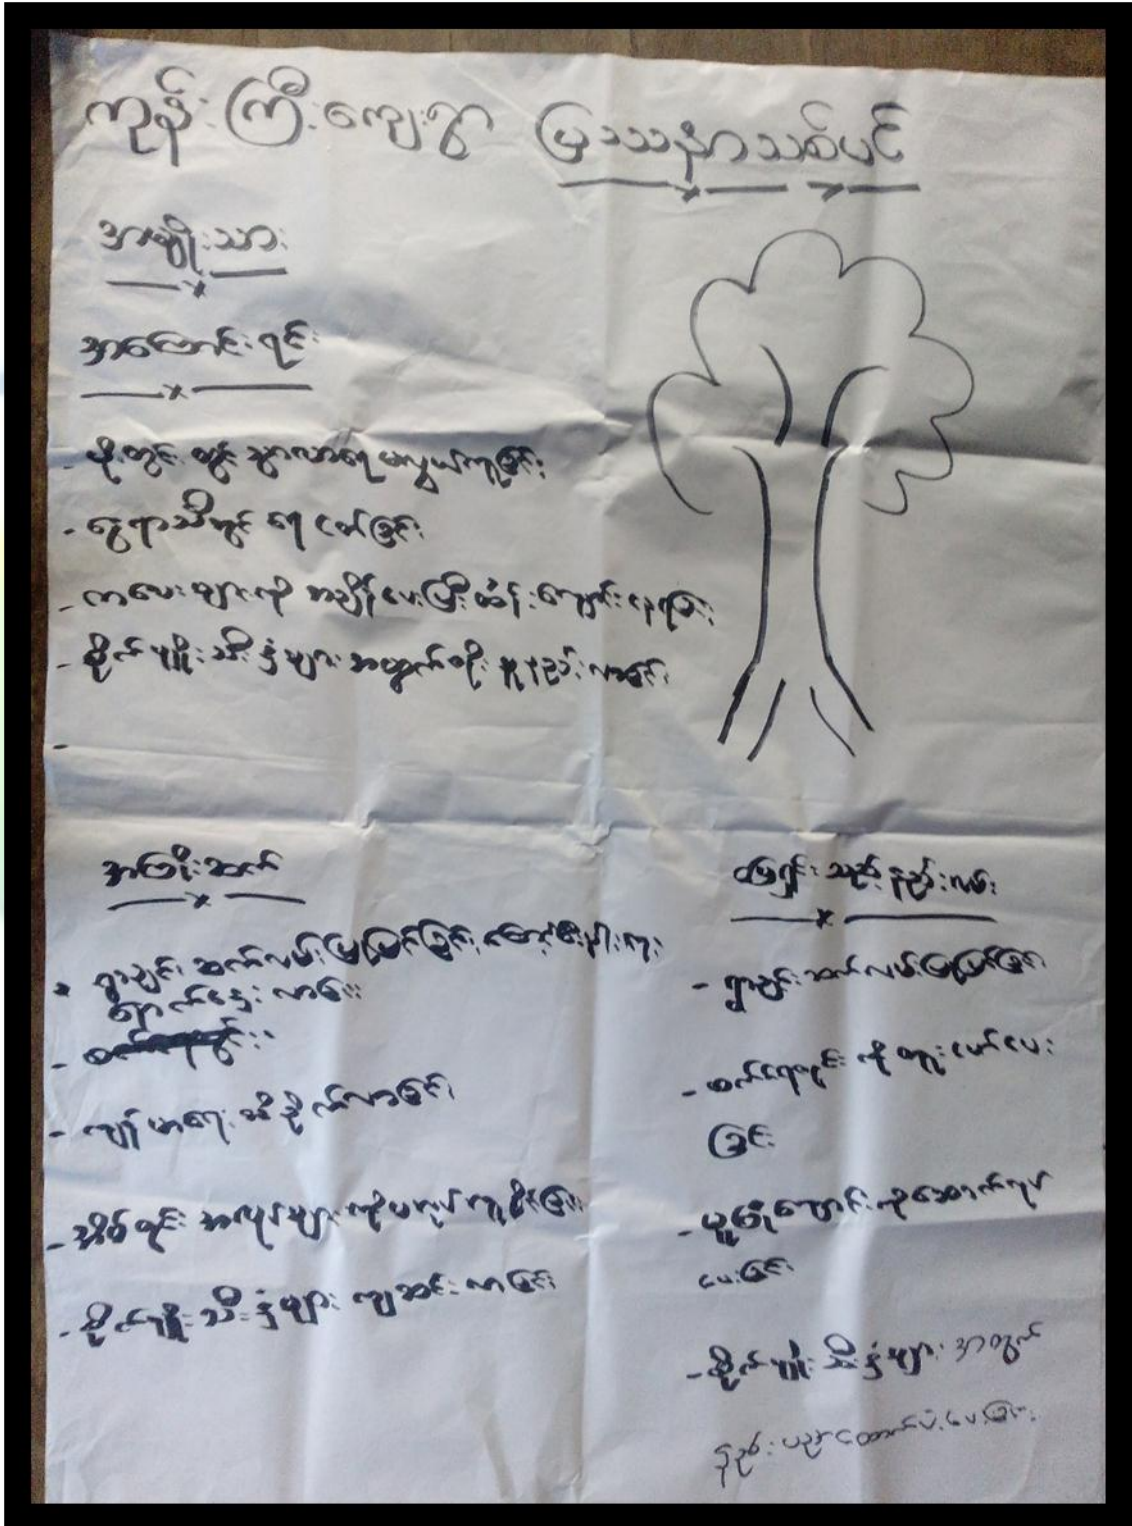 ကုန်းကြီးကျေးရွာ ပြဿနာသစ်ပင်
အမျိုးသား
အကြောင်းရင်း
- မိုးတွင်းတွင် သွားလာရေးမလွယ်ကူခြင်း
- နွေရာသီတွင် ရေငတ်ခြင်း
- ကလေးများကို အချိန်ပေးပြီးထိန်းကျောင်းနေရခြင်း
- စိုက်ပျိုးသီးနှံများအထွက်နှုန်းနည်းလာခြင်း
-
အကျိုးဆက်
- ရွာချင်းဆက်လမ်းပြုပြင်ခြင်း
ရောက်နှေးလာခြင်း
-
- ကျန်းမာရေးထိခိုက်လာခြင်း
- အိမ်တွင်းအလုပ်များကိုမလုပ်ကူနိုင်ခြင်း
- စိုက်ပျိုးသီးနှံများ ကျဆင်းလာခြင်း
ဖြေရှင်းသည့်နည်းလမ်း
- ရွာချင်းဆက်လမ်းပြုပြင်ခြင်း
- စက်ရေတွင်းကိုတူးဖော်ပေး
ခြင်း
- မူကြိုကျောင်းကိုဆောက်လုပ်
ပေးခြင်း
- စိုက်ပျိုးသီးနှံများအတွက်
နည်းပညာထောက်ပံ့ပေးခြင်း